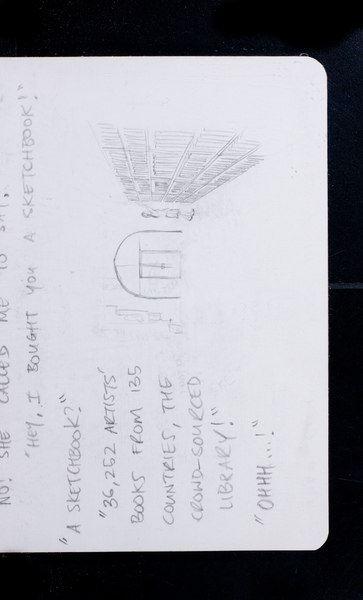 NO! SHE CALLED ME TO SAY,
"HEY, I BOUGHT YOU A SKETCHBOOK!"
"A SKETCHBOOK?"
"36,252 ARTISTS'
BOOKS FROM 135
COUNTRIES, THE
CROWD-SOURCED
LIBRARY!"
"OHHH...!"